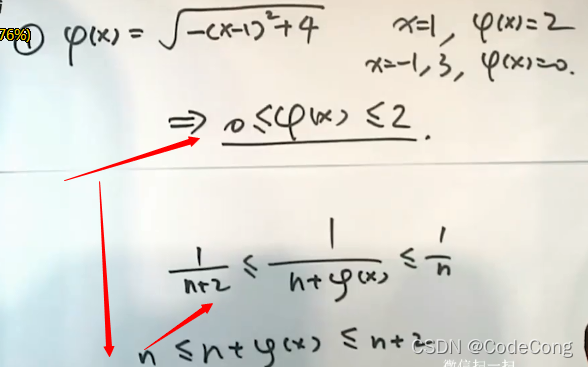 76%)
① φ(x) = √(-(x-1)²+4)    x=1, φ(x)=2
x=-1, 3, φ(x)=0.
⇒ 0≤φ(x)≤2.
1/(n+2) ≤ 1/(n+φ(x)) ≤ 1/n
n ≤ n+φ(x) ≤ n+2
CSDN @CodeCong
微信扫一扫